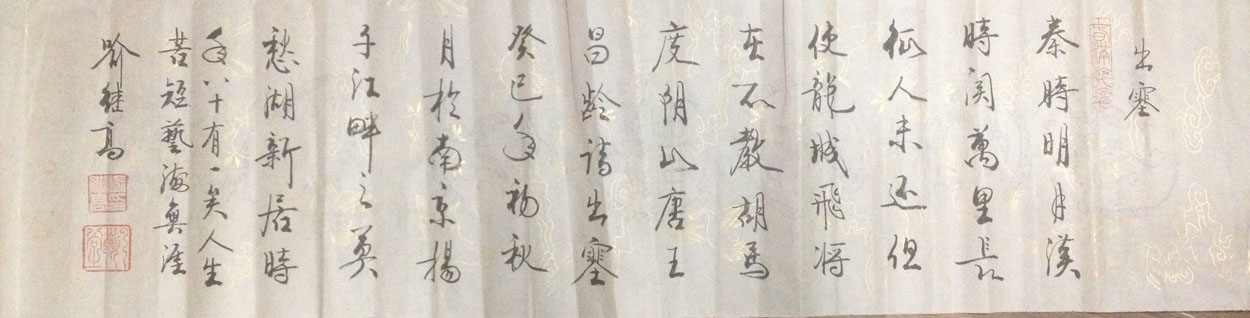 出塞
秦時明月漢
時関萬里長
征人未还但
使龍城飛将
在不教胡馬
度阴山唐王
昌龄詩出塞
癸巳年初秋
月於南京揚
子江畔之莫
愁湖新居時
年八十有一矣人生
苦短藝海無涯
喻继高